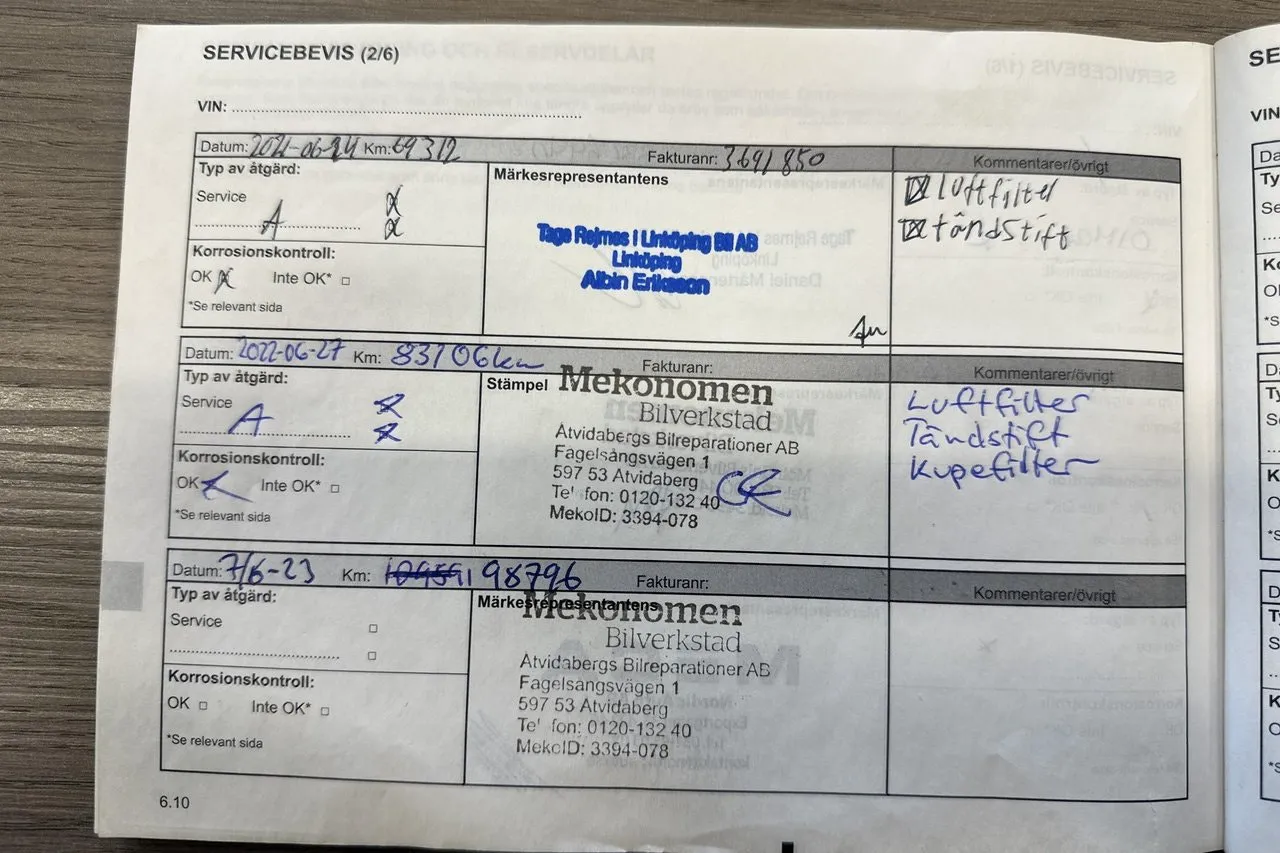 SERVICEBEVIS (2/6)
VIN:
Datum: 2021-06-24 Km: 69312 Fakturanr: 3691850 Kommentarer/övrigt
Typ av åtgärd:
Service
A
Korrosionskontroll:
OK Inte OK*
*Se relevant sida
Märkesrepresentantens
Tage Rejmes i Linköping Bil AB
Linköping
Albin Eriksson
Luftfilter
tändstift
Datum: 2022-06-27 Km: 83106km Fakturanr: Kommentarer/övrigt
Typ av åtgärd:
Service
A
Korrosionskontroll:
OK Inte OK*
*Se relevant sida
Stämpel
Mekonomen
Bilverkstad
Åtvidabergs Bilreparationer AB
Fågelsångsvägen 1
597 53 Åtvidaberg
Te' fon: 0120-132 40
MekoID: 3394-078
Luftfilter
Tändstift
Kupefilter
Datum: 7/6-23 Km: 98796 Fakturanr: Kommentarer/övrigt
Typ av åtgärd:
Service
Korrosionskontroll:
OK Inte OK*
*Se relevant sida
Märkesrepresentantens
Mekonomen
Bilverkstad
Åtvidabergs Bilreparationer AB
Fågelsångsvägen 1
597 53 Åtvidaberg
Te' fon: 0120-132 40
MekoID: 3394-078
6.10
SE
VIN